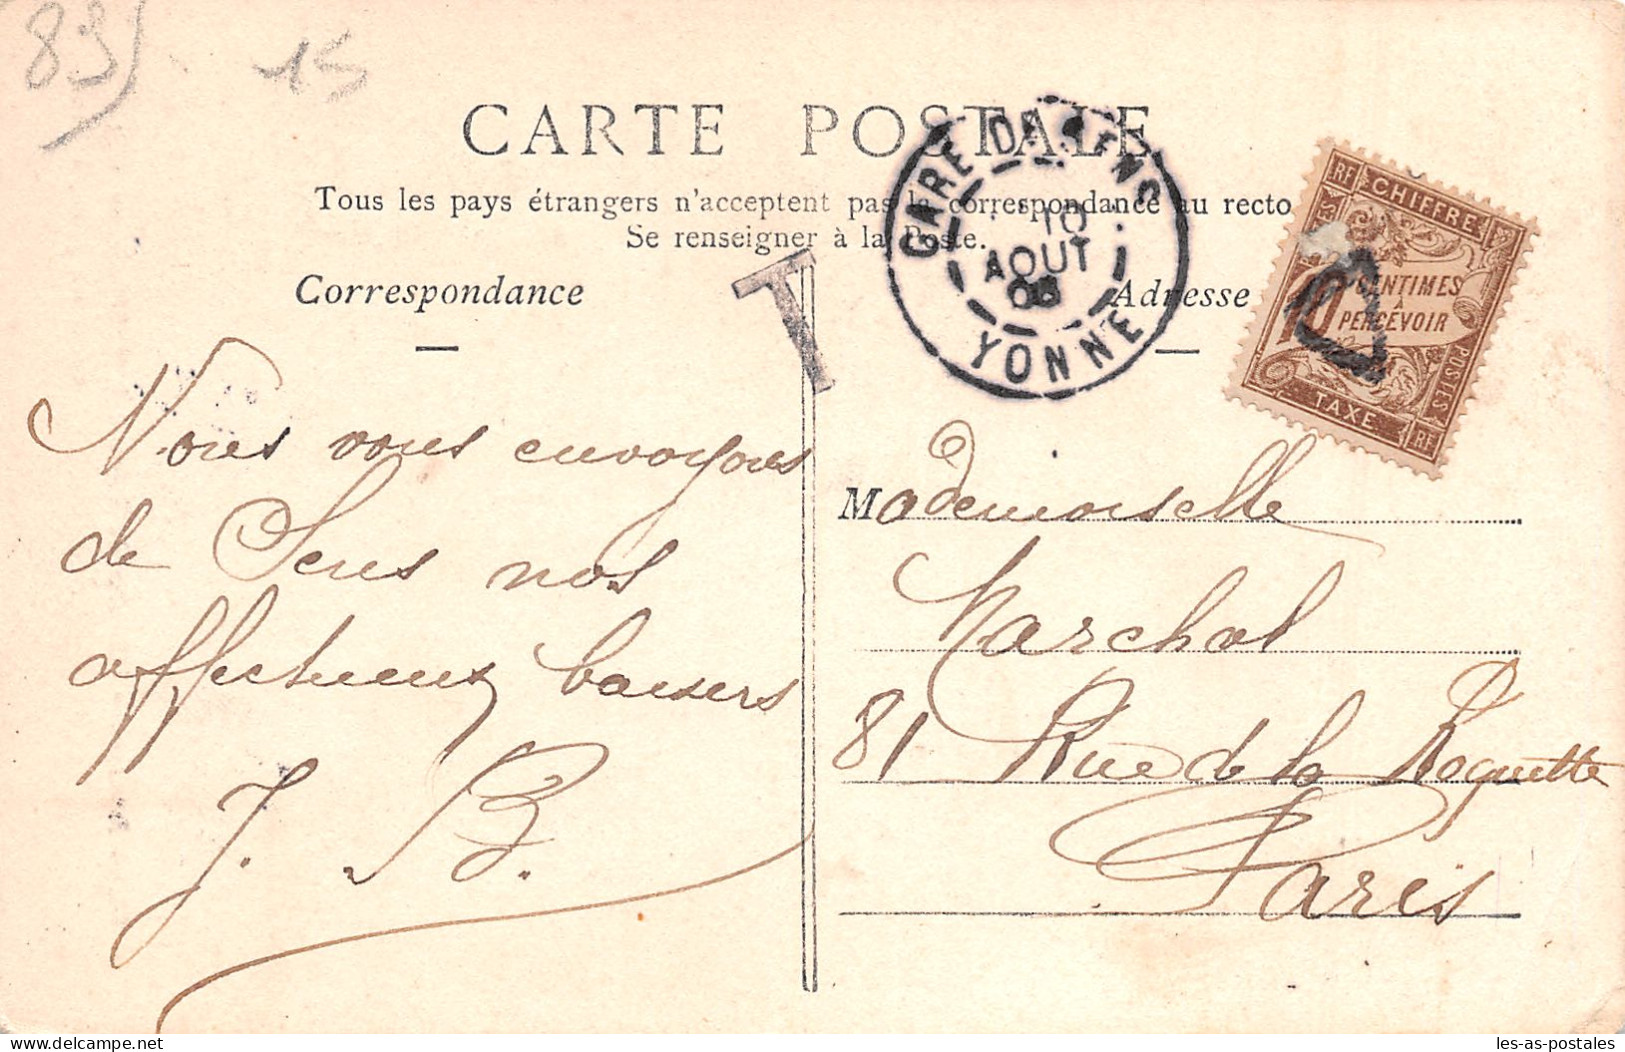 83 15
CARTE POSTALE
Tous les pays étrangers n'acceptent pas la correspondance au recto
Se renseigner à la Poste.
Correspondance
Adresse
T
GARE DE SENS
10
AOUT
YONNE
RF CHIFFRE
10 CENTIMES
A
PERCEVOIR
POSTES
TAXE RF
Nous vous envoyons
de Sens nos
affectueux baisers
J. B.
Mademoiselle
Marchal
81 Rue de la Roquette
Paris
delcampe.net
les-as-postales